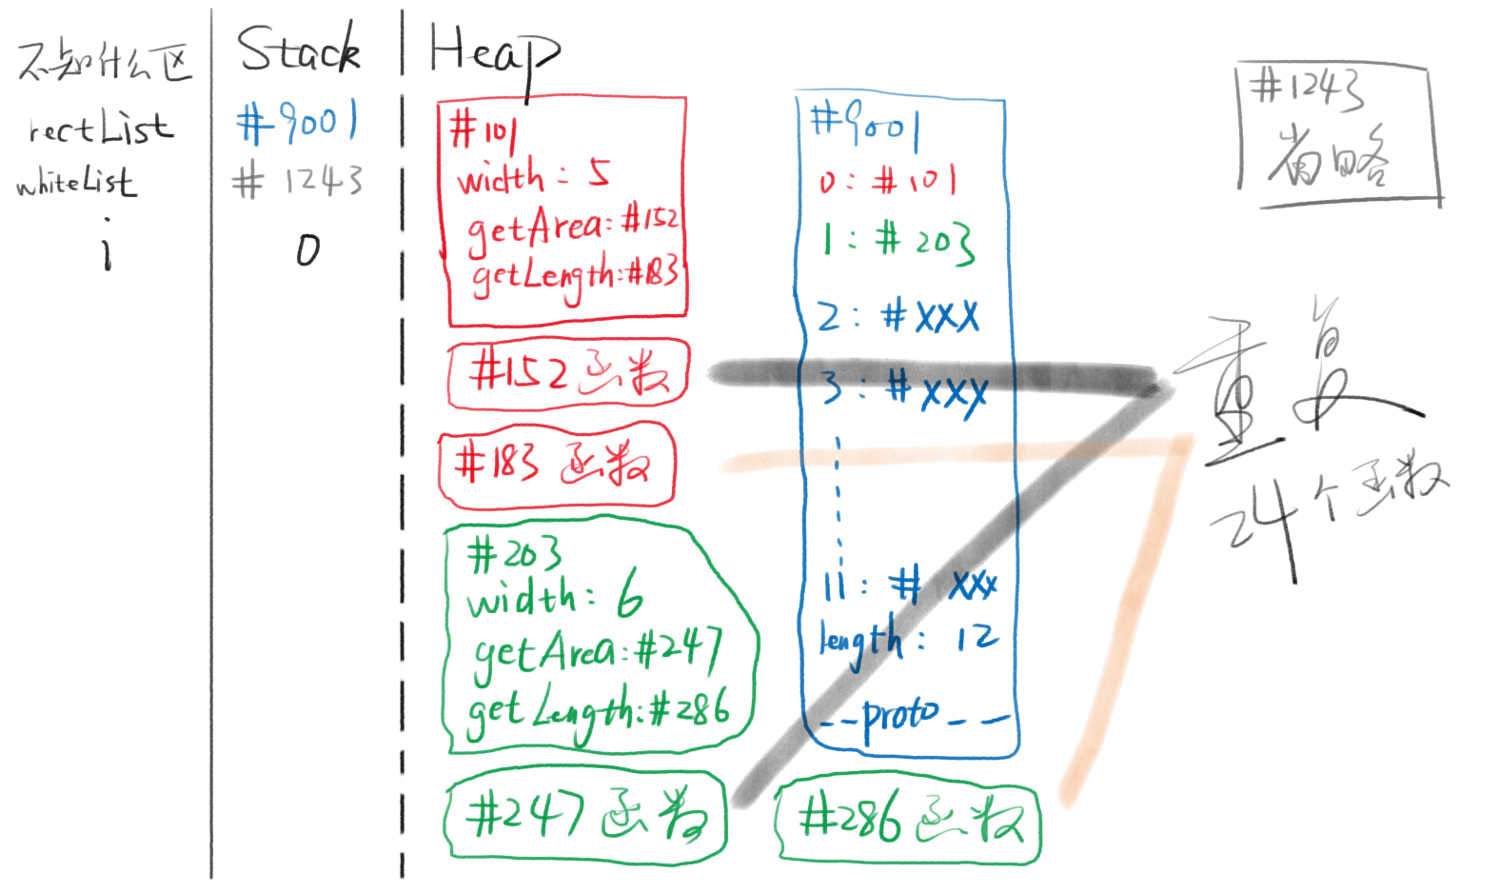 不知什么区
rectList
whiteList
i
Stack
#9001
# 1243
0
Heap
#101
width: 5
getArea:#152
getLength:#183
#152 函数
#183 函数
#203
width: 6
getArea:#247
getLength:#286
#247 函数
#9001
0: #101
1: #203
2: #XXX
3: #XXX
11: # XXX
length: 12
--proto--
#286 函数
#1243
省略
重复
24个函数